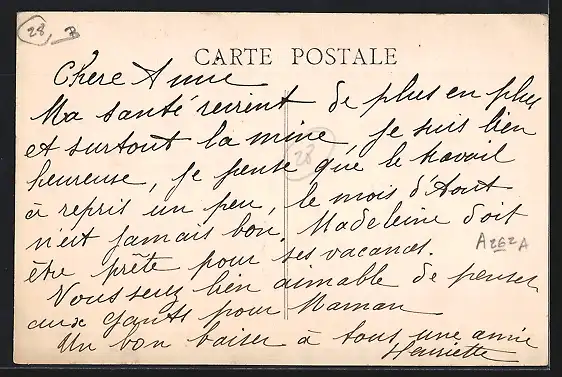 28 B
CARTE POSTALE
Chere Annie
Ma santé revient de plus en plus
et surtout la mine, je suis bien
heureuse, je pense que le travail
28
à repris un peu, le mois d'Aout
n'est jamais bon. Madeleine doit
être prête pour ses vacances.
Vous serez bien aimable de penser
aux gants pour Maman
Un bon baiser à tous une amie
Henriette